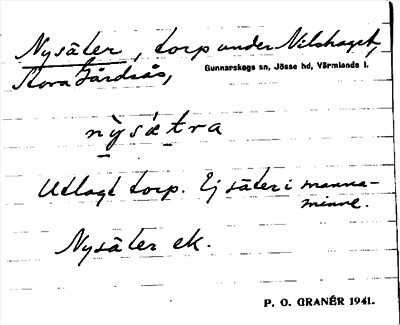 Nysäter, torp under Nilshaget,
Stora Gårdsås, Gunnarskogs sn, Jösse hd, Värmlands l.
nỳsætra
Utlagt torp. Ej säter i manna-
minne.
Nysäter ek.
P. O. GRANÉR 1941.